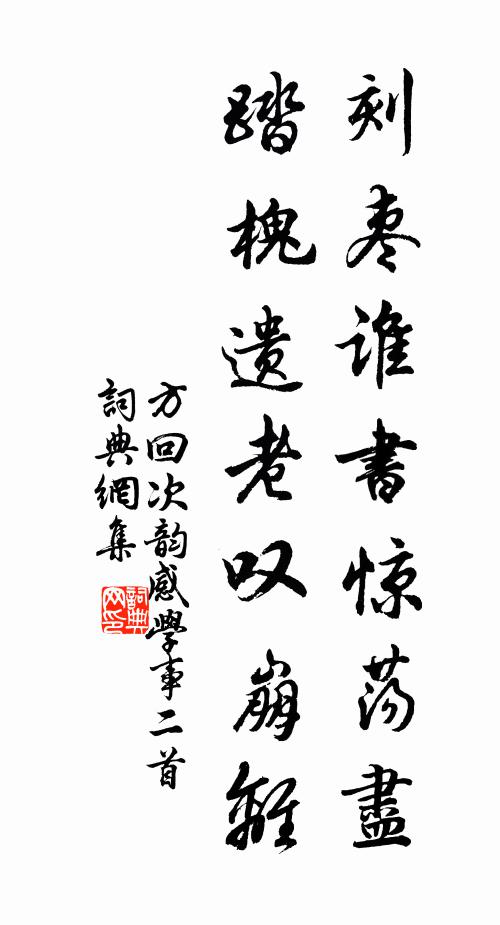 刻枣谁书惊荡盡
踏槐遗老叹崩離
方回次韵感學事二首
詞典網集
詞典网印